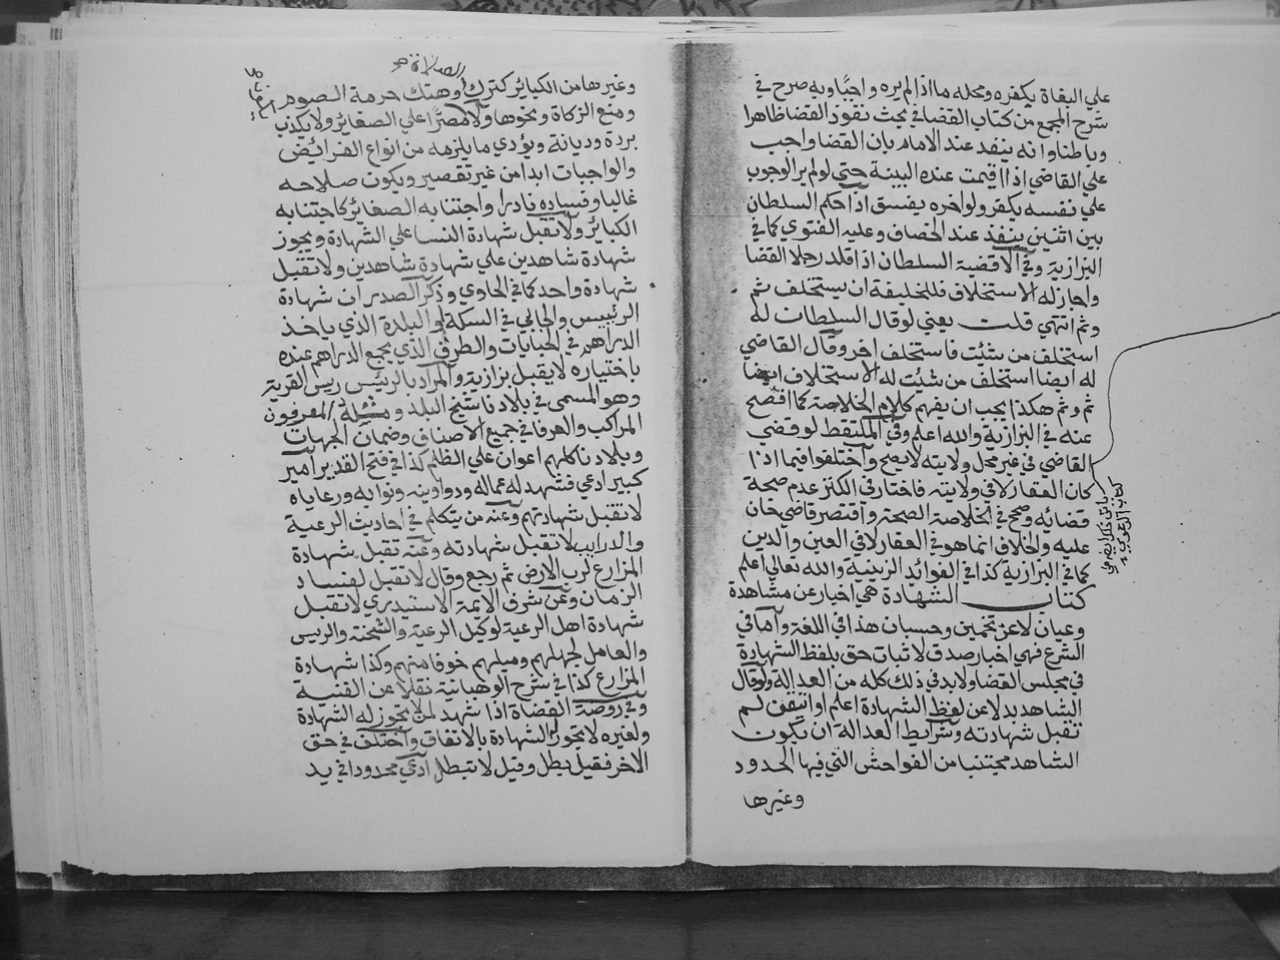 علي البغاة يكفره ومحله ما اذا لم يره واجبا وبه صرح في
شرح المجمع من كتاب القضا في بحث نفوذ القضا ظاهرا
وباطنا وانه ينفد عند الامام بان القضا واجب
علي القاضي اذا اقيمت عنده البينة حتي لو لم ير الوجوب
علي نفسه يكفر ولو اخره يفسق اذا حكم السلطان
بين اثنين ينفذ عند الخصاف وعليه الفتوي كما في
البزازية وفي الاقضية السلطان اذا قلد رجلا القضا
واجاز له الاستخلاف فللخليفة ان يستخلف ثم
وثم انتهي قلت يعني لو قال السلطان له
استخلف من شئت فاستخلف اخر وقال القاضي
له ايضا استخلف من شئت له الاستخلاف ايضا
ثم وثم هكذا يجب ان يفهم كلام الخلاصة كما افصح
عنه في البزازية والله اعلم وفي الملتقط لو قضي
القاضي في غير محل ولايته لا يصح واختلفوا فيما اذا
كان العقار لا في ولايته فاختار في الكنز عدم صحة
قضائه وصحح في الخلاصة الصحة واقتصر قاضي خان
عليه والخلاف انما هو في العقار لا في العين والدين
كما في البزازية كذا في الفوائد الزينية والله تعالي اعلم
كتاب الشهادة هي اخبار عن مشاهدة
وعيان لا عن تخمين وحسبان هذا في اللغة واما في
الشرع فهي اخبار صدق لاثبات حق بلفظ الشهادة
في مجلس القضا ولا بد في ذلك كله من العدالة ولو قال
الشاهد بدلا عن لفظ الشهادة اعلم او اتيقن لم
تقبل شهادته وشرايط العدالة ان يكون
الشاهد مجتنبا من الفواحش التي فيها الحدود
وغيرها
كتاب الدعوي
الصلاة
وغيرها من الكبائر كترك وهتك حرمة الصوم
ومنع الزكاة ونحوها ولا مصرا علي الصغائر ولا يكذب
ودیانة ويؤدي ما يلزمه من انواع الفرائض
والواجبات ابدا من غير تقصير ويكون صلاحه
غالبا وفساده نادرا واجتنابه الصغائر كاجتنابه
الكبائر ولا تقبل شهادة النسا علي الشهادة ويجوز
شهادة شاهدين علي شهادة شاهدين ولا تقبل
شهادة واحد كما في الحاوي وذكر الصدر ان شهادة
الرئيس والجابي في السكة او البلدة الذي ياخذ
الدراهم في الجبايات والصرفي الذي يجمع الدراهم عنده
باختياره لا يقبل بزازية والمراد بالرئيس ريس القرية
وهو المسمي في بلادنا شيخ البلد ومثله المعرفون
المراكب والعرفا في جميع الاصناف وضمان الجهات
وبلادنا كلهم اعوان علي الظلم كذا في فتح القدير امير
كبير ادعي فشهد له عماله ودواوينه ونوابه ورعاياه
لا تقبل شهادتهم وعنه من يتكلم في احاديث الرعية
لا تقبل شهادته وعنه تقبل شهادة
المزارع لرب الارض ثم رجع وقال لا تقبل لفساد
الزمان وعن شرف الايمة الاسفيدري لا تقبل
شهادة اهل الرعية لوكيل الرعية والشحنة والريس
والعامل لجهلهم وميلهم خوفا منهم وكذا شهادة
المزارع كذا في شرح الوهبانية نقلا عن القنية
وفي روضة القضاة اذا شهد لمن لا تجوز له الشهادة
ولغيره لا تجوز الشهادة بالاتفاق واختلف في حق
الاخر فقيل يبطل وقيل لا تبطل ادعي محدودا في يد